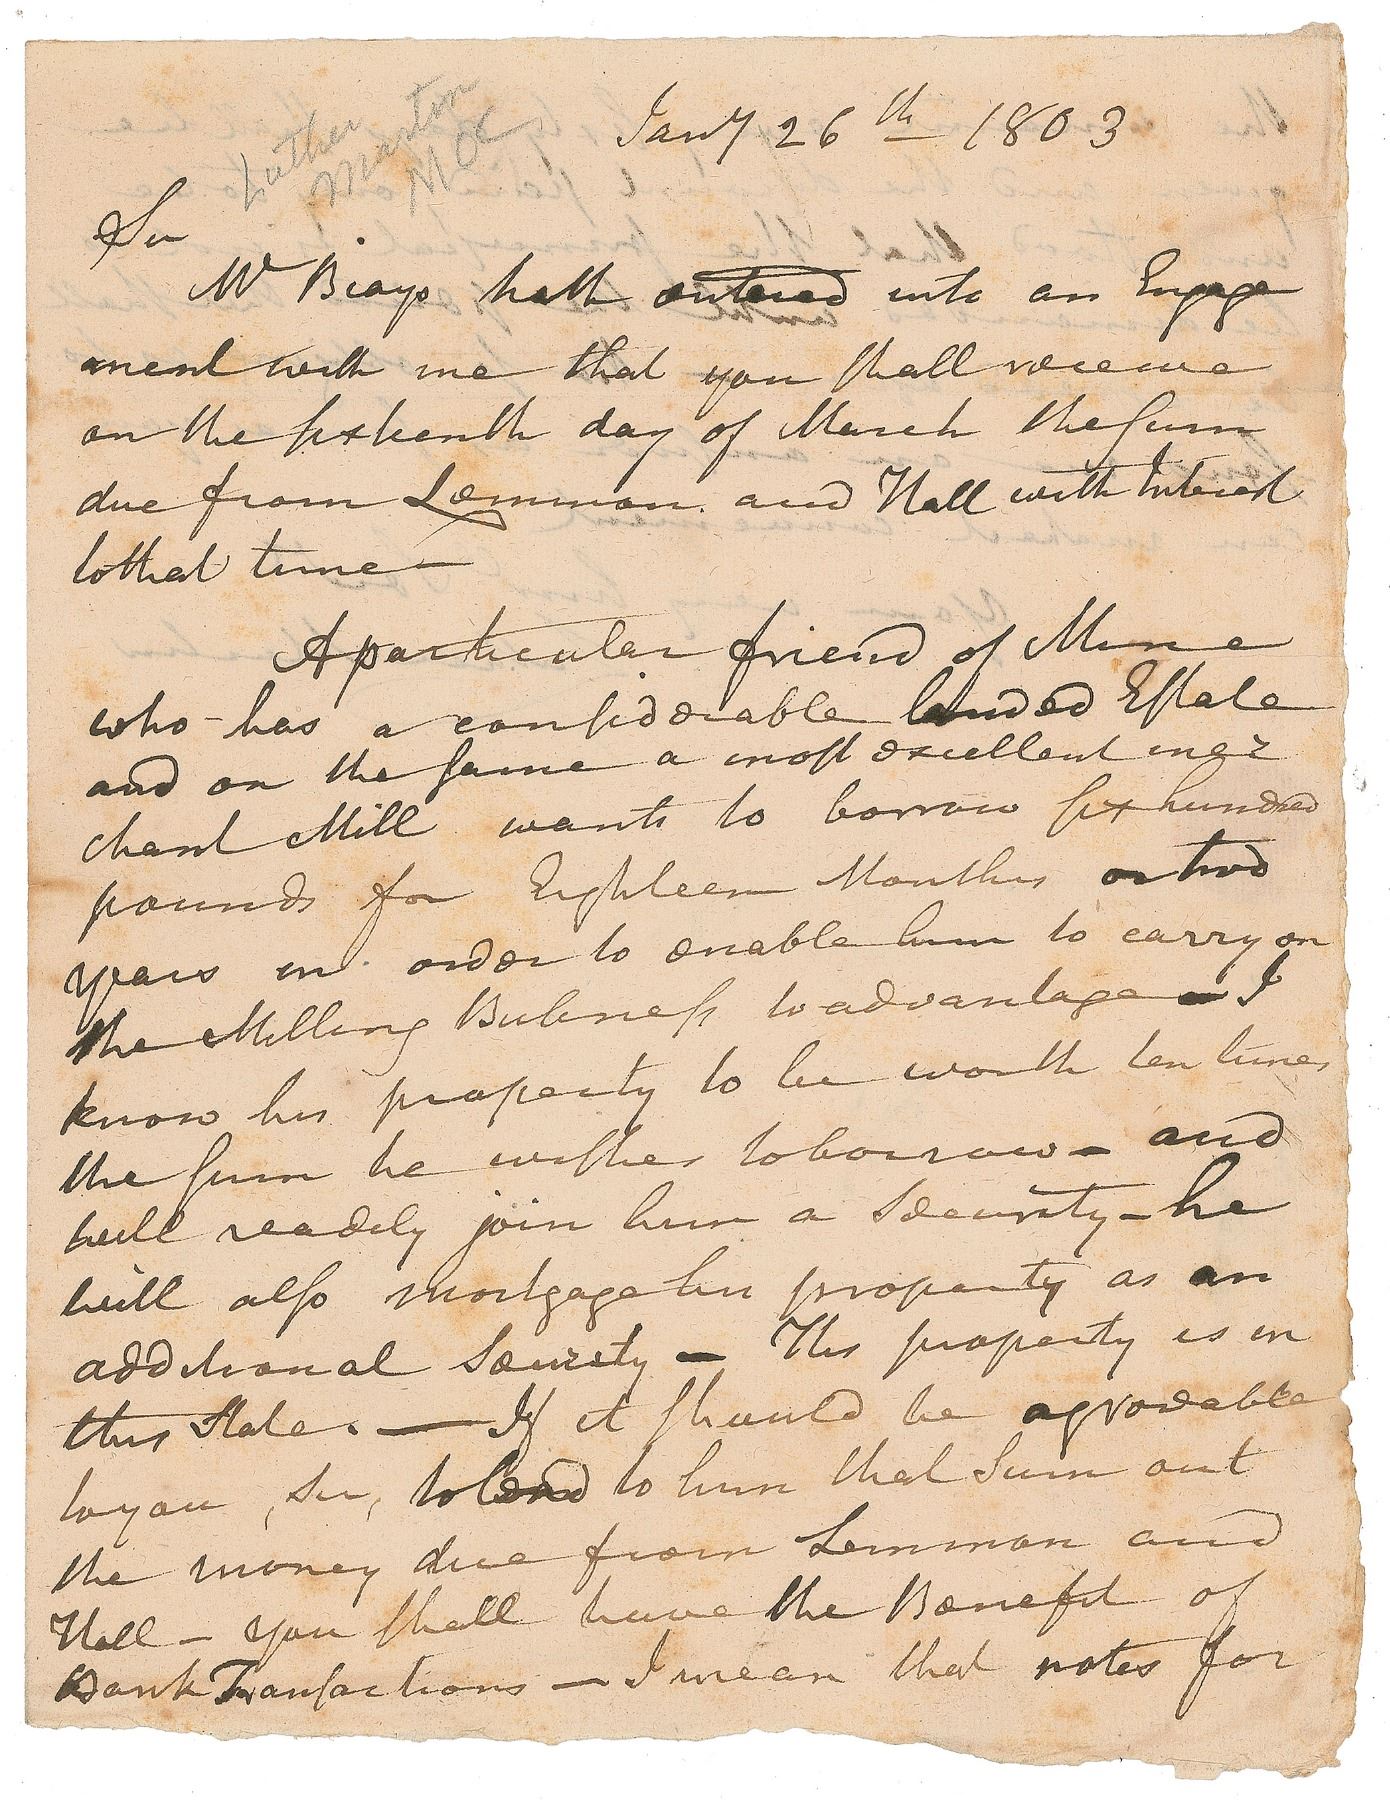 Luther
Martin
MOC
Jany 26th 1803
Sir
Mr Biays hath entered into an Engage
ment with me that you shall receive
on the sixteenth day of March the sum
due from Lemmon and Hall with Interest
to that time —
A particular friend of Mine
who has a considerable landed Estate
and on the same a most excellent mer
chant Mill wants to borrow six hundred
pounds for Eighteen Months or two
years in order to enable him to carry on
the Milling Business to advantage — I
know his property to be worth ten times
the sum he wishes to borrow — and
will readily join him a Security — he
will also mortgage his property as an
additional Security — His property is in
this State. — If it should be agreeable
to you, Sir, to lend to him that Sum out
the money due from Lemmon and
Hall — you shall have the Benefit of
Bank Transactions — I mean that notes for